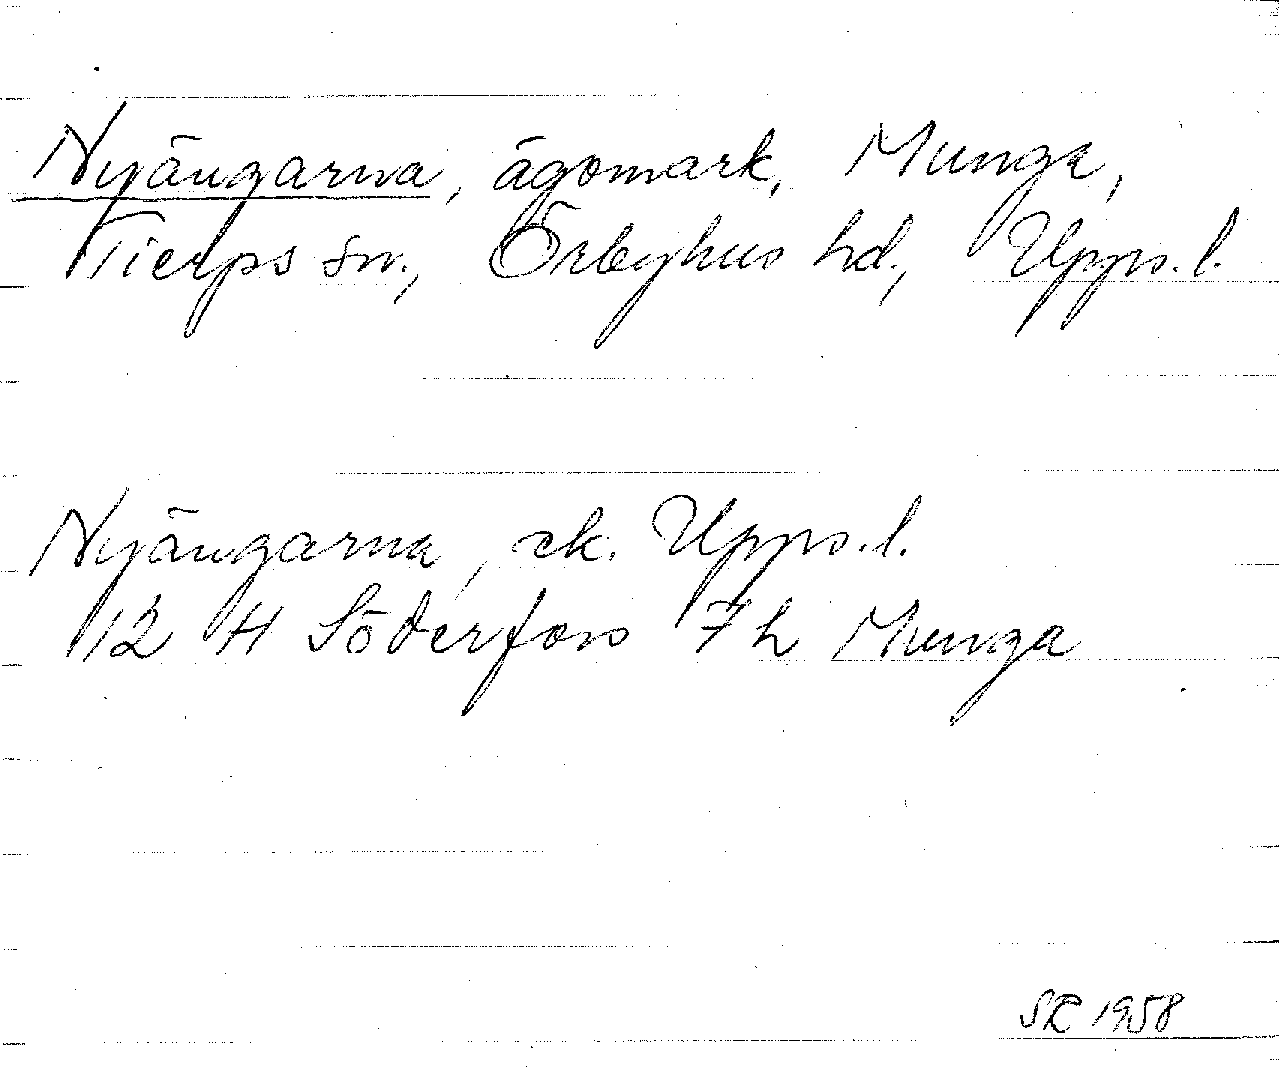 Nyängarna, ägomark, Munga,
Tierps sn., Örbyhus hd., Upps. l.
Nyängarna, ek. Upps. l.
12 H Söderfors 7 h Munga
SR 1958